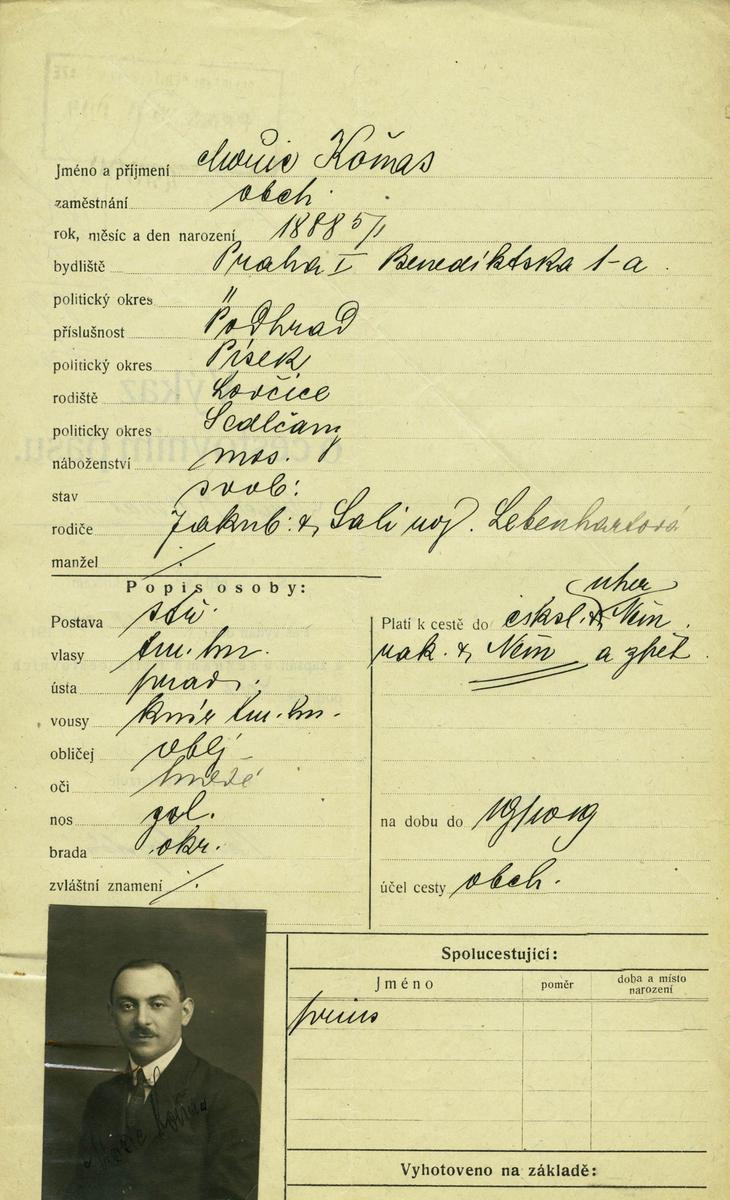 Jméno a příjmení Moric Kořas
zaměstnání obch.
rok, měsíc a den narození 1888 5/1
bydliště Praha I Benediktska 1-a
politický okres "
příslušnost Podhrad
politický okres Písek
rodiště Lovčice
politicky okres Sedlčany
náboženství mos.
stav svob:
rodiče Jakub: & Sali roz. Lebenhartová
manžel ./.
Popis osoby:
Postava stř.
vlasy tm. hn.
ústa prav.
vousy knír tm. hn.
obličej oblý
oči hnědé
nos
brada okr.
zvláštní znamení ./.
uher
Platí k cestě do čsksl. & Něm.
rak. & Něm a zpět
na dobu do
účel cesty obch.
Spolucestující:
Jméno
poměr
doba a místo
narození
Vyhotoveno na základě: